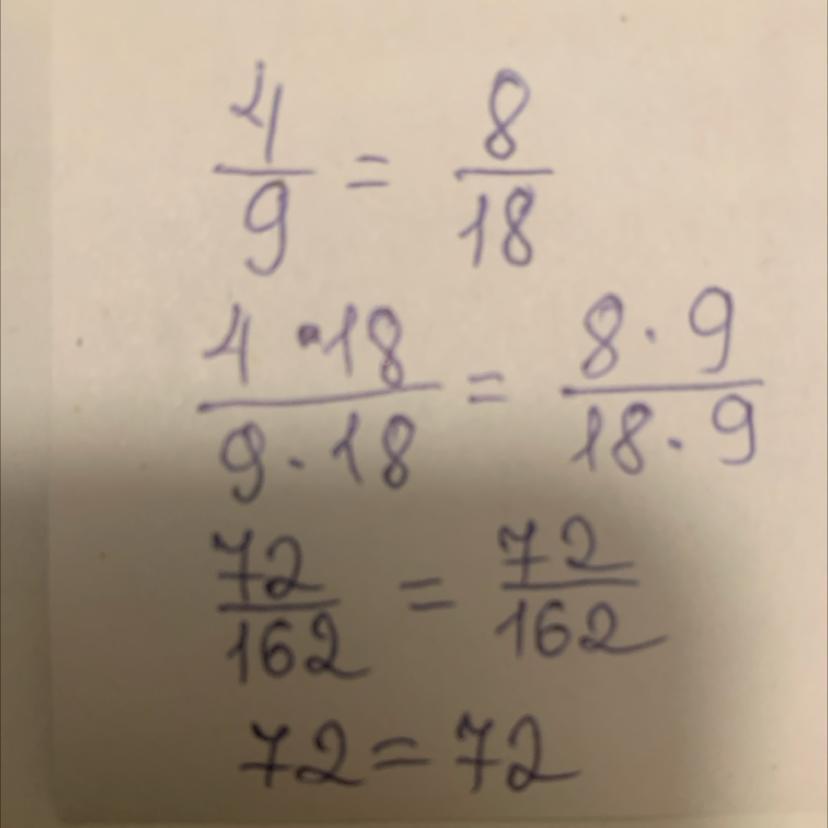 4/9 = 8/18
4·18/9·18 = 8·9/18·9
72/162 = 72/162
72=72